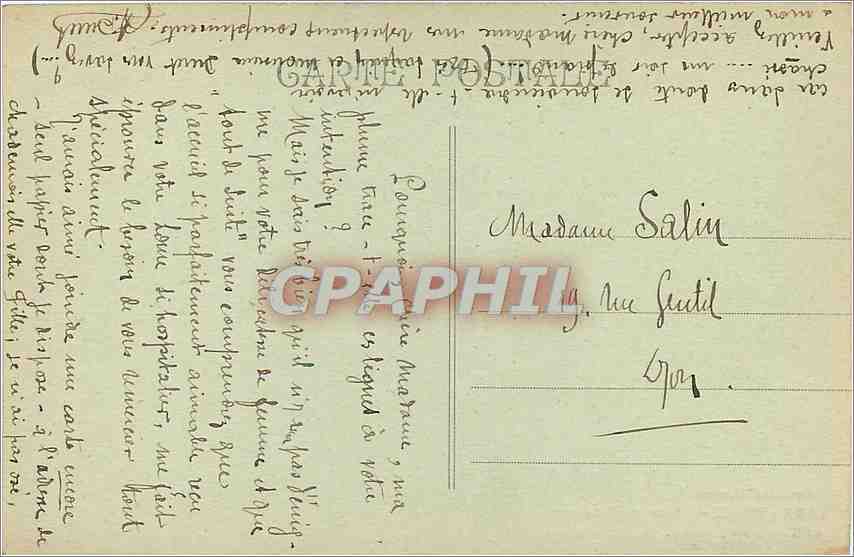 CARTE POSTALE
Pourquoi, chère Madame, ma
plume trace-t-elle ces lignes à votre
intention ?
Mais je sais très bien qu'il n'y a pas d'énig-
me pour votre délicatesse de femme et que
tout de suite" vous comprendrez que
l'accueil si parfaitement aimable reçu
dans votre home si hospitalier, me fait
éprouver le besoin de vous remercier tout
spécialement.
J'aurais aimé joindre une carte encore
- seul papier dont je dispose - à l'adresse de
Mademoiselle votre fille, je n'ai pas osé,
car sans doute se souviendra-t-elle
un soir
Veuillez accepter, chère Madame mes respectueux compliments.
à mon meilleur souvenir.
Madame Salin
19, rue Gentil
Lyon.
CPAPHIL